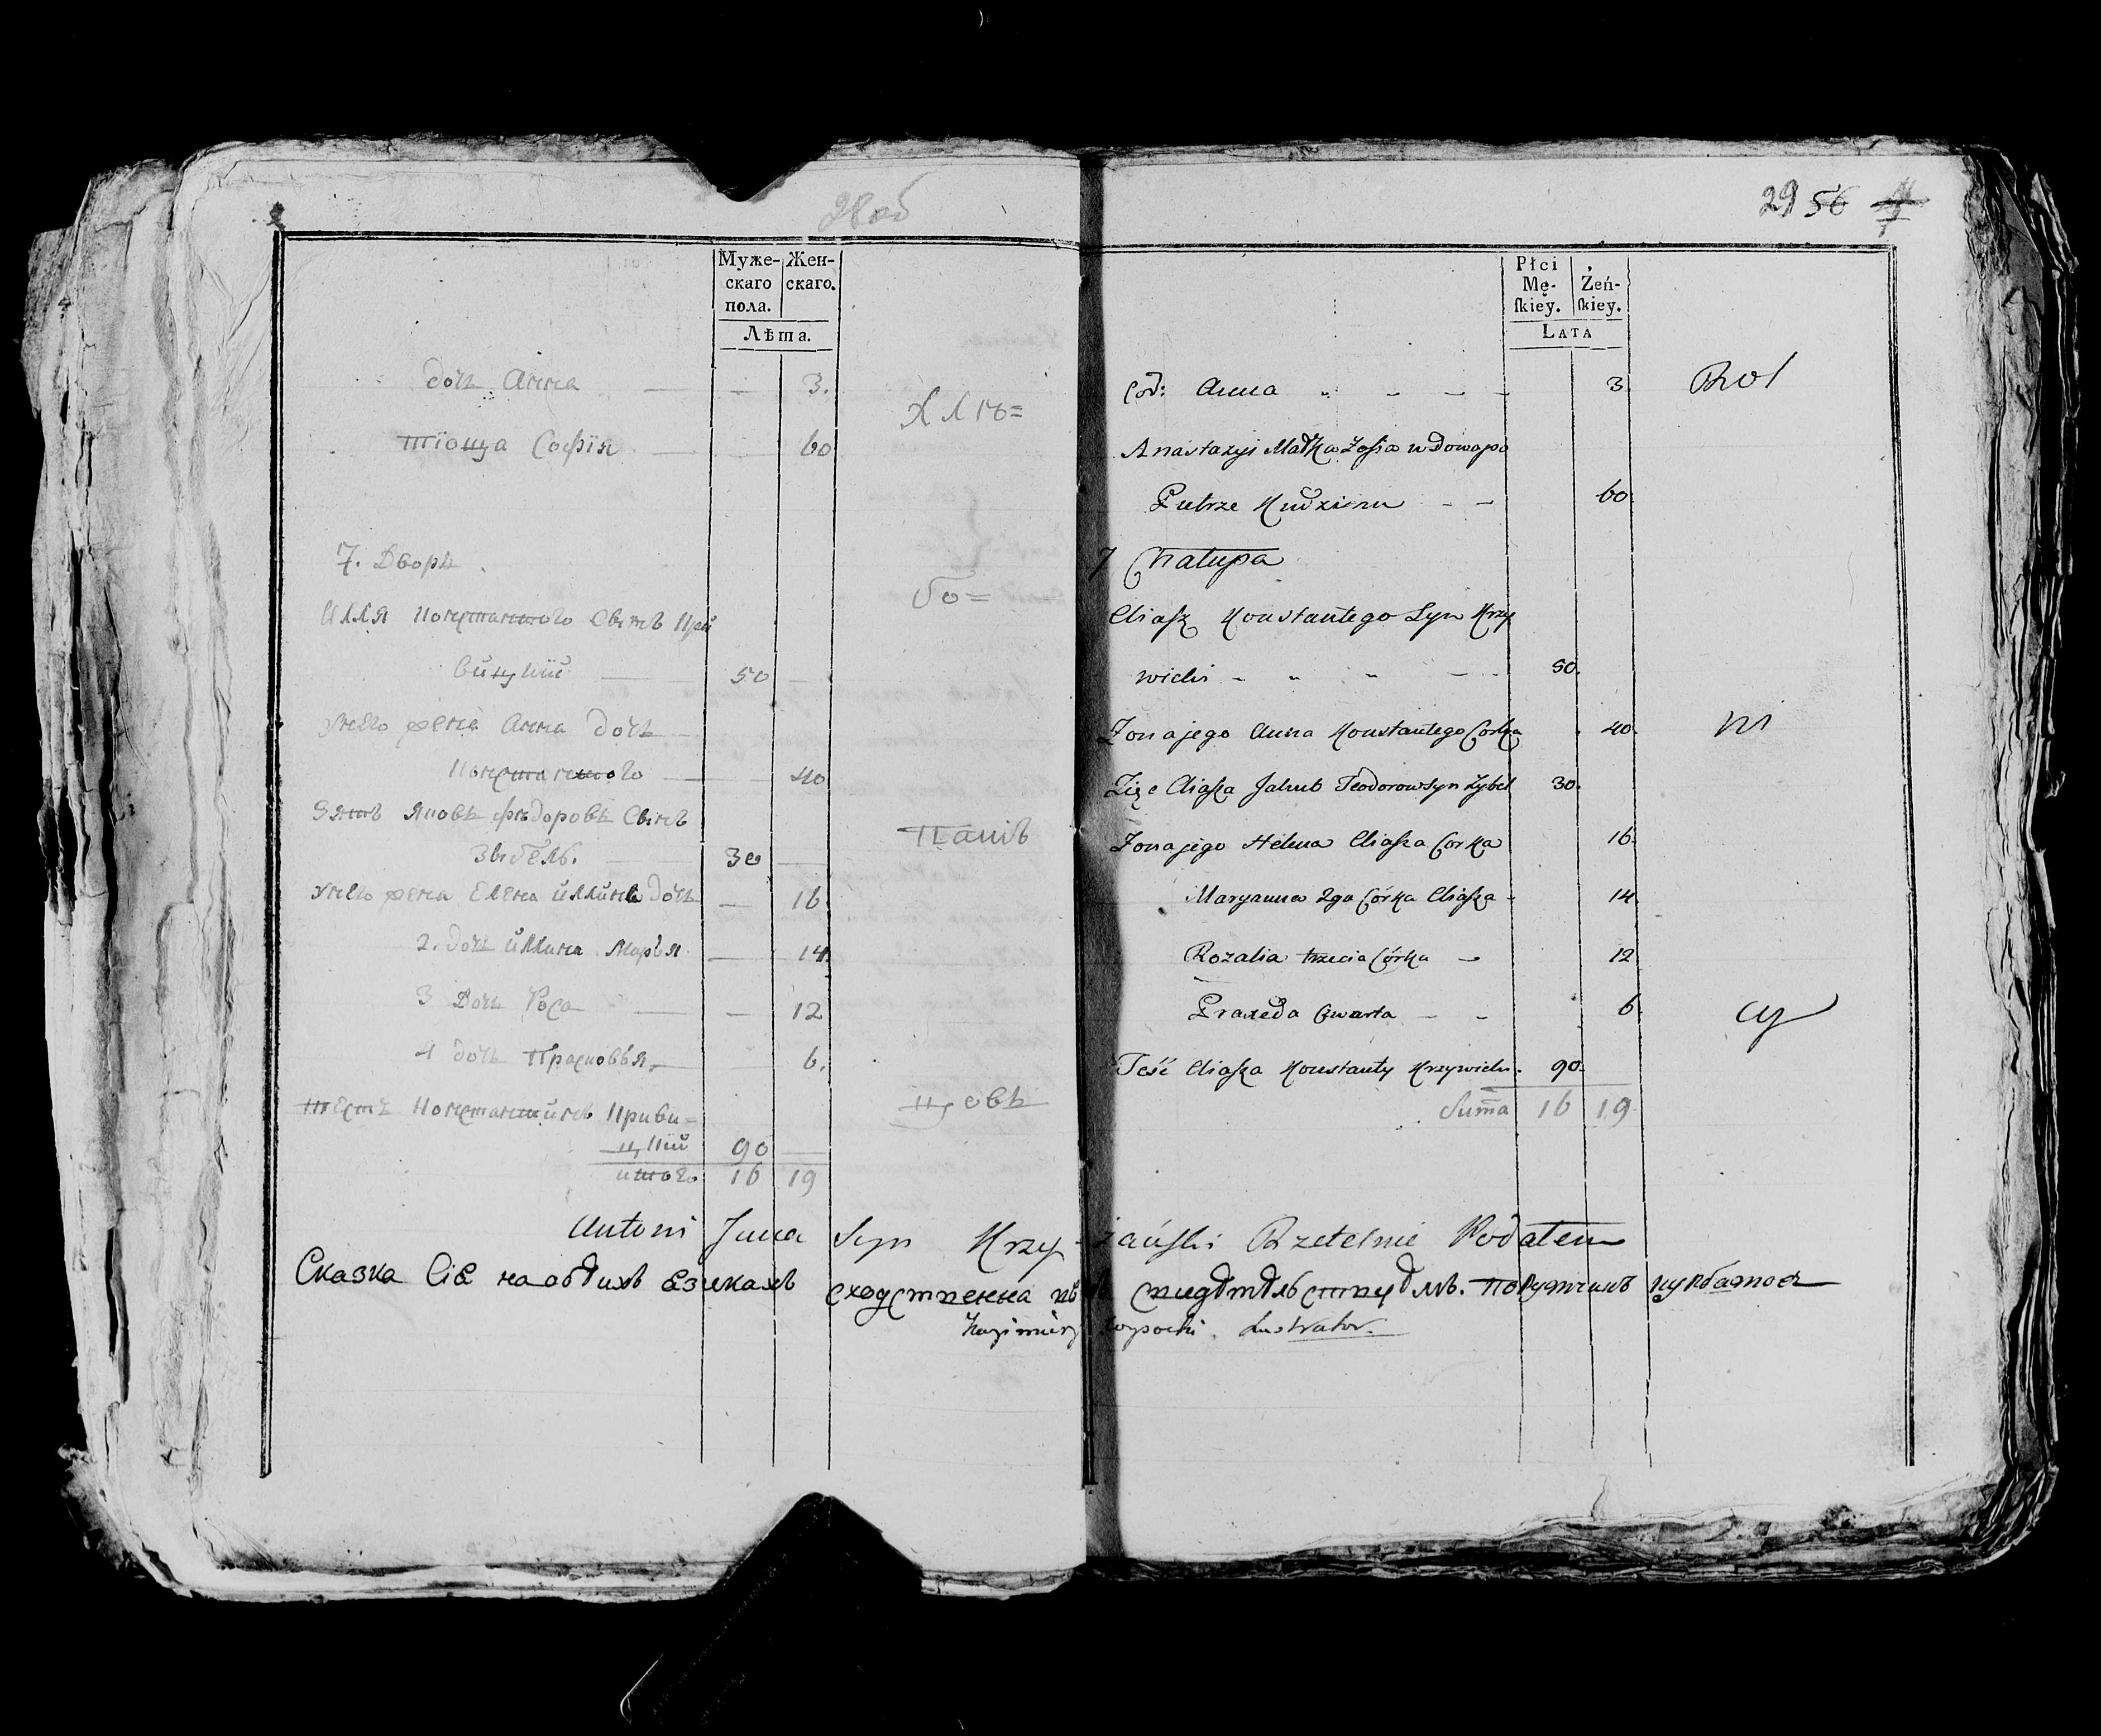 28об
Муже-
скаго
пола.
Жен-
скаго.
Лѣта.
дочь Анна 3.
Хлѣ=
тіоща Софія 60
7. Дворъ
бо=
Илля Константого Сынъ Кри
вицкій 50
У него жена Анна дочь
Констатного 40
Зять Яковъ Фѣдоровъ Сынъ
Пашц
Зыбель. 30
У него жена Елена иллина дочь 16
2. дочь иллина Марья 14
3 Дочь Роса 12
4 дочь Прасковья 6.
Тесть Констант Криви=
цовъ
цкій 90
итого 16 19
29 56
Płci
Mę-
ſkiey.
Żeń-
ſkiey.
LATA
Cor: Anna 3
Rol
Anastazyi Matka Zofia wdowa po
Pietrze Kudzieniu 60
7 Chałupa
Eliasz Konstantego Syn Krzy
wicki 50.
Żona jego Anna Konstantego Corka 40.
ni
Zięc Eliasza Jakub Teodorow Syn Zybel 30.
Żona jego Helena Eliasza Corka 16.
Maryanna 2ga Córka Eliasza 14.
Rozalia trzecia Córka 12
Praxeda Czwarta 6.
cy
Teść Eliasza Konstanty Krzywicki. 90.
Suma 16 19.
Antoni Jana Syn Krzyżański Rzetelnie Podałem
Сказка Сіе на обоихъ езыкахъ сходственна въ
Kazimierz Wysocki. Lustrator.